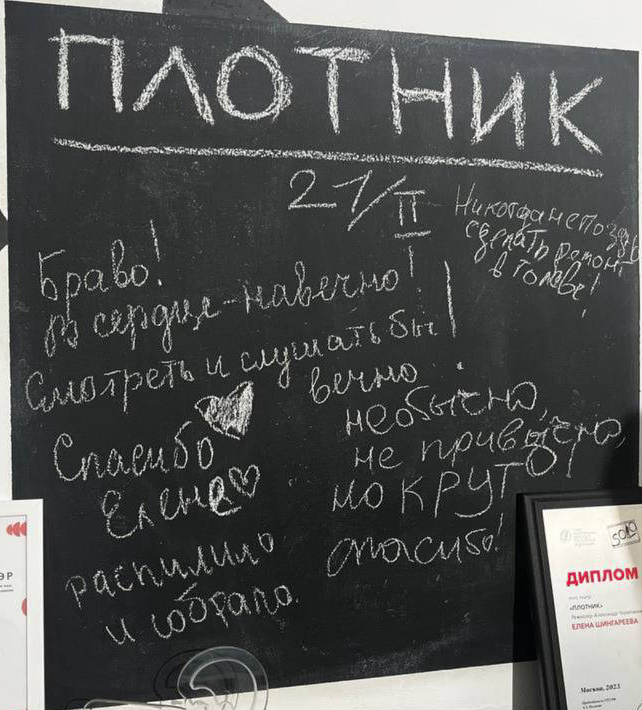 ПЛОТНИК
21/II
Никогда не поздно
сделать ремонт
в голове!
Браво!
В сердце - навечно!
Смотреть и слушать бы
вечно
Спасибо
Елена
распилило
и собрало.
необычно,
не привычно,
но КРУТО!
спасибо!
ДИПЛОМ
«ПЛОТНИК»
ЕЛЕНА ШИНГАРЕЕВА
Москва, 2023